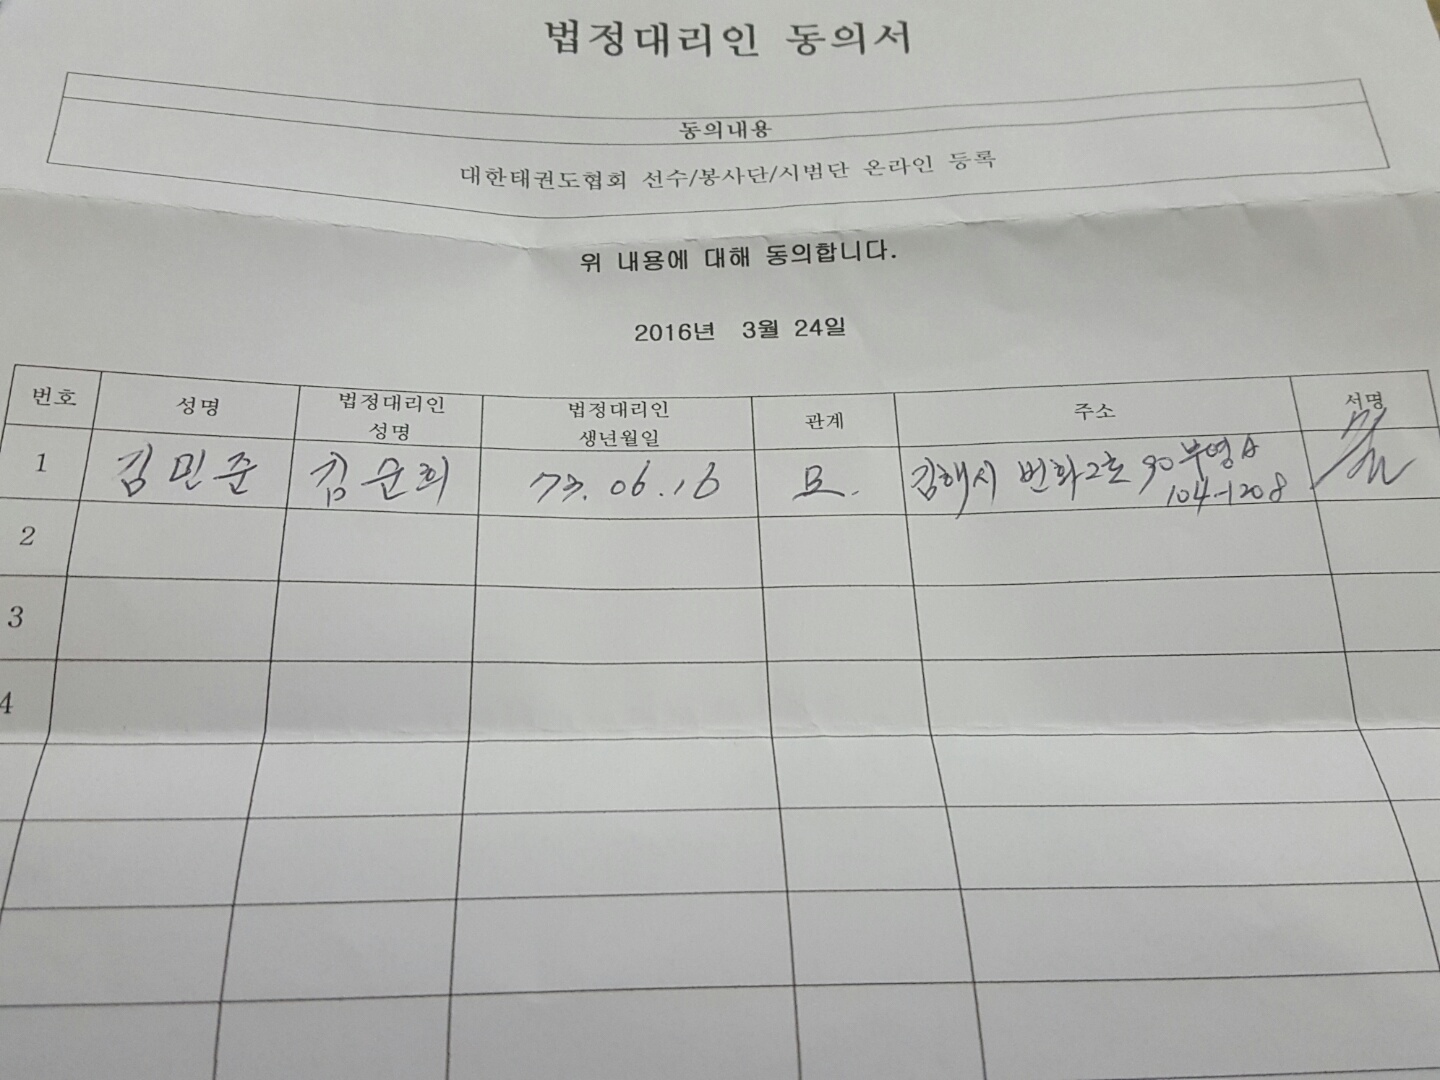 법정대리인 동의서
동의내용
대한태권도협회 선수/봉사단/시범단 온라인 등록
위 내용에 대해 동의합니다.
2016년 3월 24일
번호 성명 법정대리인 성명 법정대리인 생년월일 관계 주소 서명
1 김민준 김순희 73.06.16 모. 김해시 번화2로 90 부영A
104-1208
2
3
4